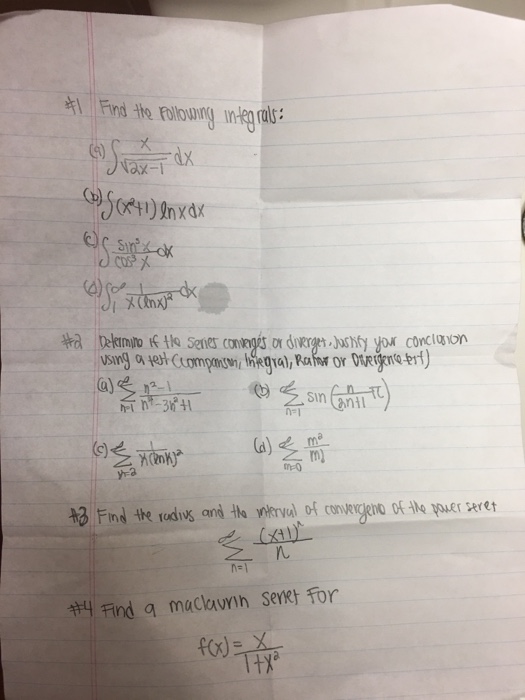 #1 Find the following integrals:
(a) ∫ x/√(2x-1) dx
(b) ∫(x²+1) ln x dx
(c) ∫ sin³x/cos³x dx
(d) ∫₁^∞ 1/(x(lnx)²) dx
#2 Determine if the series converges or diverges. Justify your conclusion
using a test (comparison, Integral, Ratio or Divergence test)
(a) ∞ Σ n=1 (n²-1)/(n⁴-3n²+1) (b) ∞ Σ n=1 sin(n/(2n+1) π)
(c) ∞ Σ 1/(x(lnx)²) (d) ∞ Σ m=0 m²/m!
#3 Find the radius and the interval of convergence of the power series
∞ Σ n=1 (x+1)ⁿ/n
#4 Find a maclaurin series for
f(x) = x/(1+x²)